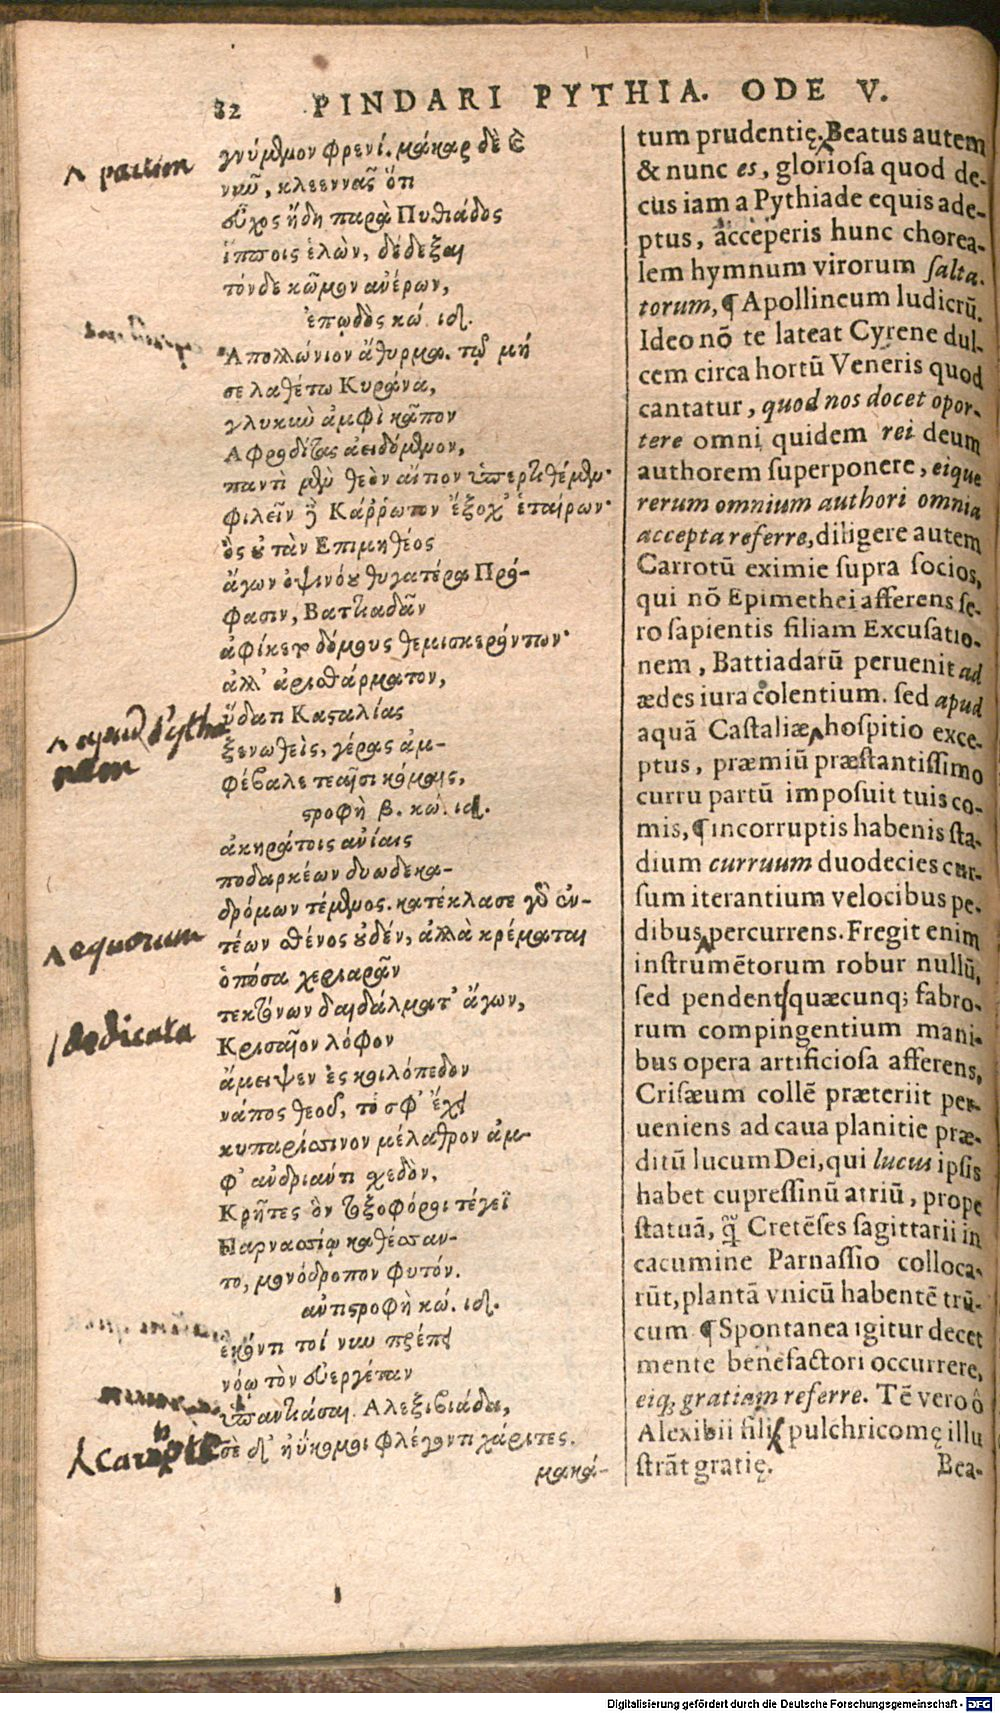 82 PINDARI PYTHIA. ODE V.
γνύμενον φρενί. μάκαρ δὲ ἒ
νῦν, κλεεννᾶς ὅτι
εὖχος ἤδη παρὰ Πυθιάδος
ἵπποις ἑλὼν, δέδεξαι
τόνδε κῶμον ἀνέρων,
ἐπῳδὸς κώ. ιδ.
Ἀπολλώνιον ἄθυρμα. τῷ μή
σε λαθέτω Κυράνα,
γλυκὺν ἀμφὶ κᾶπον
Ἀφροδίτας ἀειδόμενον,
παντὶ μὲν θεὸν αἴτιον ὑπερτιθέμεν·
φιλεῖν ἢ Κάῤῥωτον ἔξοχ' ἑταίρων·
ὃς οὐ τὰν Ἐπιμηθέος
ἄγων ὀψινόου θυγατέρα Πρό-
φασιν, Βαττιαδᾶν
ἀφίκετο δόμους θεμισκρεόντων·
ἀλλ' ἀρισθάρματον,
ὕδατι Κασταλίας
ξενωθεὶς, γέρας ἀμ-
φέβαλε τεαῖσι κόμαις,
στροφὴ β. κώ. ιδ.
ἀκηράτοις ἀνίαις
ποδαρκέων δυωδεκα-
δρόμων τέμενος. κατέκλασε γὰρ ἐν-
τέων σθένος οὐδέν, ἀλλὰ κρέμαται
ὁπόσα χεριαρᾶν
τεκτόνων δαιδάλματ' ἄγων,
Κρισαῖον λόφον
ἄμειψεν ἐς κοιλόπεδον
νάπος θεοῦ, τό σφ' ἔχει
κυπαρίσσινον μέλαθρον ἀμ-
φ' ἀνδριάντι σχεδὸν,
Κρῆτες ὃν τοξοφόροι τέγεϊ
Παρνασσίῳ καθέσσαν-
το, μονόδροπον φυτόν.
ἀντιστροφὴ κώ. ιδ.
ἑκόντι τοί νυν πρέπει
νόῳ τὸν εὐεργέταν
ὑπαντιάσαι. Ἀλεξιβιάδα,
σὲ δ' ἠΰκομοι φλέγοντι χάριτες.
μακά-
tum prudentię. Beatus autem
& nunc es, gloriosa quod de-
cus iam a Pythiade equis ade-
ptus, acceperis hunc chorea-
lem hymnum virorum salta-
torum, ¶ Apollineum ludicrū.
Ideo nō te lateat Cyrene dul-
cem circa hortū Veneris quod
cantatur, quod nos docet opor-
tere omni quidem rei deum
authorem superponere, eique
rerum omnium authori omnia
accepta referre, diligere autem
Carrotū eximie supra socios,
qui nō Epimethei afferens se-
ro sapientis filiam Excusatio-
nem, Battiadarū peruenit ad
ædes iura colentium. sed apud
aquā Castaliæ hospitio exce-
ptus, præmiū præstantissimo
curru partū imposuit tuis co-
mis, ¶ incorruptis habenis sta-
dium curruum duodecies cur-
sum iterantium velocibus pe-
dibus percurrens. Fregit enim
instrumētorum robur nullū,
sed pendent quæcunq; fabro-
rum compingentium mani-
bus opera artificiosa afferens,
Crisæum collē præteriit per-
ueniens ad caua planitie præ-
ditū lucum Dei, qui lucus ipsis
habet cupressinū atriū, prope
statuā, q̄ Cretēses sagittarii in
cacumine Parnassio colloca-
rūt, plantā vnicū habentē trū-
cum ¶ Spontanea igitur decet
mente benefactori occurrere,
eiq; gratiam referre. Tē vero ô
Alexibii fili pulchricomę illu
strāt gratię. Bea-
partim
equorum
dedicata